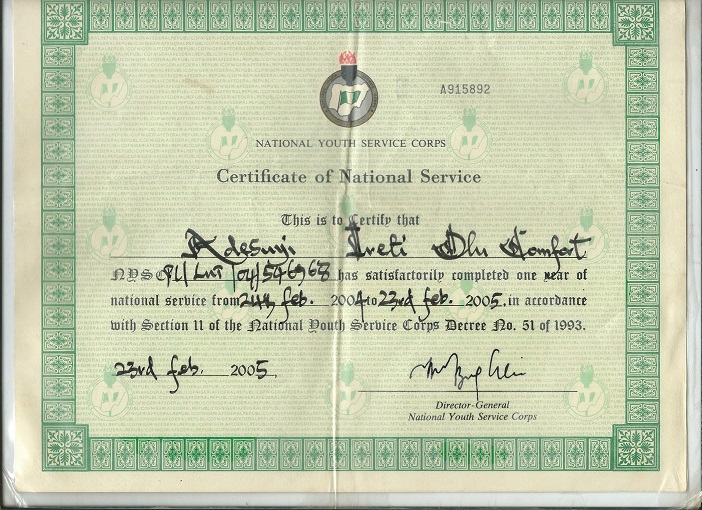 A915892
NATIONAL YOUTH SERVICE CORPS
Certificate of National Service
This is to Certify that
Adesuyi Ireti Olu Comfort
NYSC PL/LUT/04/546968 has satisfactorily completed one year of
national service from 24th feb. 2004 to 23rd feb. 2005. in accordance
with Section 11 of the National Youth Service Corps Decree No. 51 of 1993.
23rd feb. 2005
Director-General
National Youth Service Corps